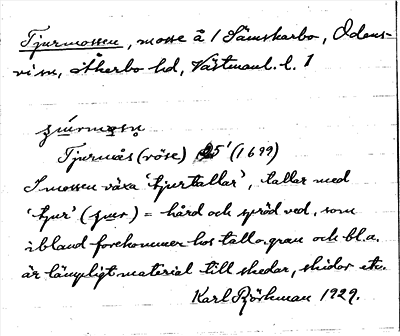 Tjurmossen, mosse å 1 Sämskarbo, Odens-
vi sn, Åkerbo hd, Västmanl. l. 1
Tjurmås (röse) 25' (1699)
I mossen växa 'tjurtallar', tallar med
'tjur' (ʒɯr) = hård och spröd ved, som
ibland förekommer hos tall o. gran och bl.a.
är lämpligt material till skedar, skidor etc.
Karl Björkman 1929.